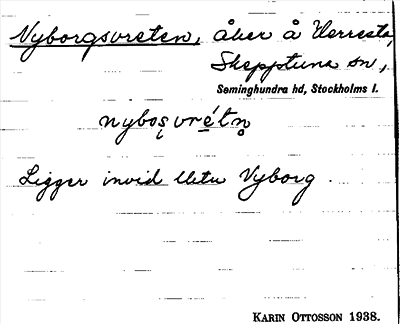 Nyborgsvreten, åker å Herresta,
Skepptuna sn,
Seminghundra hd, Stockholms l.
nybosvrétn
Ligger invid Nyborg.
Karin Ottosson 1938.